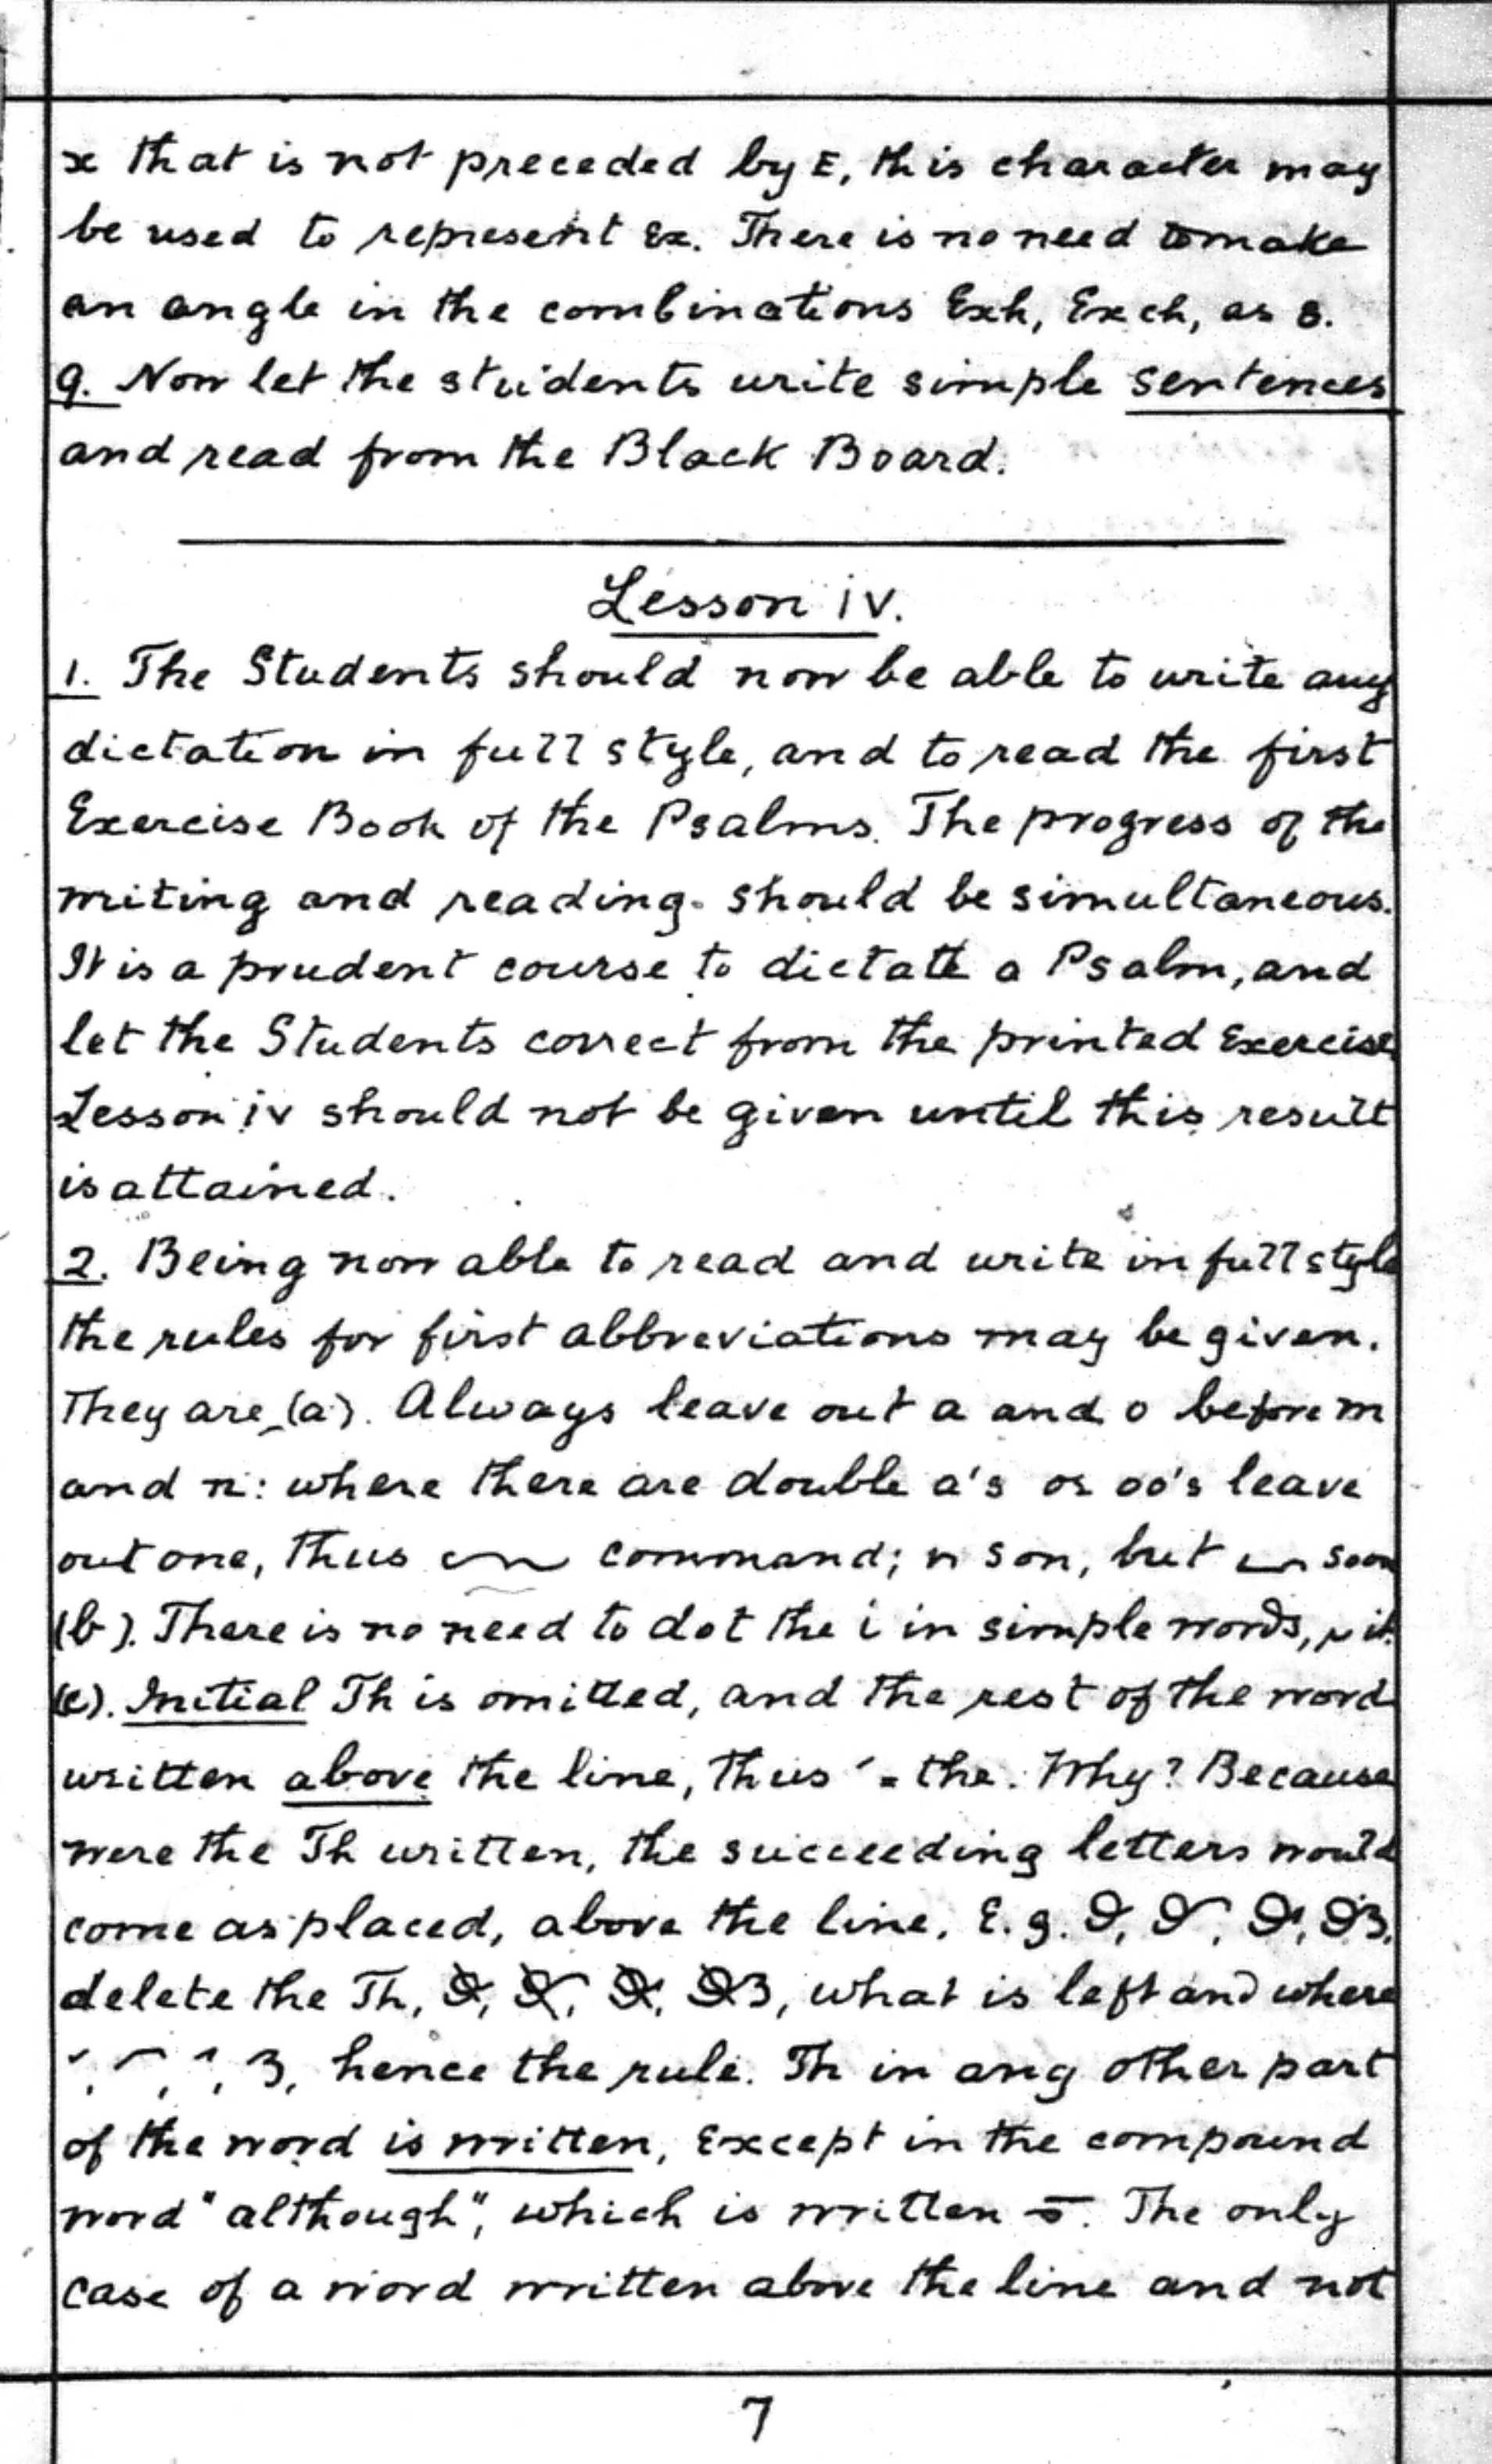 x that is not preceded by E, this character may
be used to represent Ex. There is no need to make
an angle in the combinations Exh, Exch, as 8.
9. Now let the students write simple sentences
and read from the Black Board.
Lesson iv.
1. The Students should now be able to write any
dictation in full style, and to read the first
Exercise Book of the Psalms. The progress of the
writing and reading should be simultaneous.
It is a prudent course to dictate a Psalm, and
let the Students correct from the printed Exercise
Lesson iv should not be given until this result
is attained.
2. Being now able to read and write in full style
the rules for first abbreviations may be given.
They are, (a). Always leave out a and o before m
and n: where there are double a's or oo's leave
out one, thus command; son, but soon
(b). There is no need to dot the i in simple words, it.
(c). Initial Th is omitted, and the rest of the word
written above the line, thus ' = the. Why? Because
were the Th written, the succeeding letters would
come as placed, above the line, E.g.
delete the Th, what is left and where
hence the rule. Th in any other part
of the word is written, Except in the compound
word "although", which is written The only
case of a word written above the line and not
7